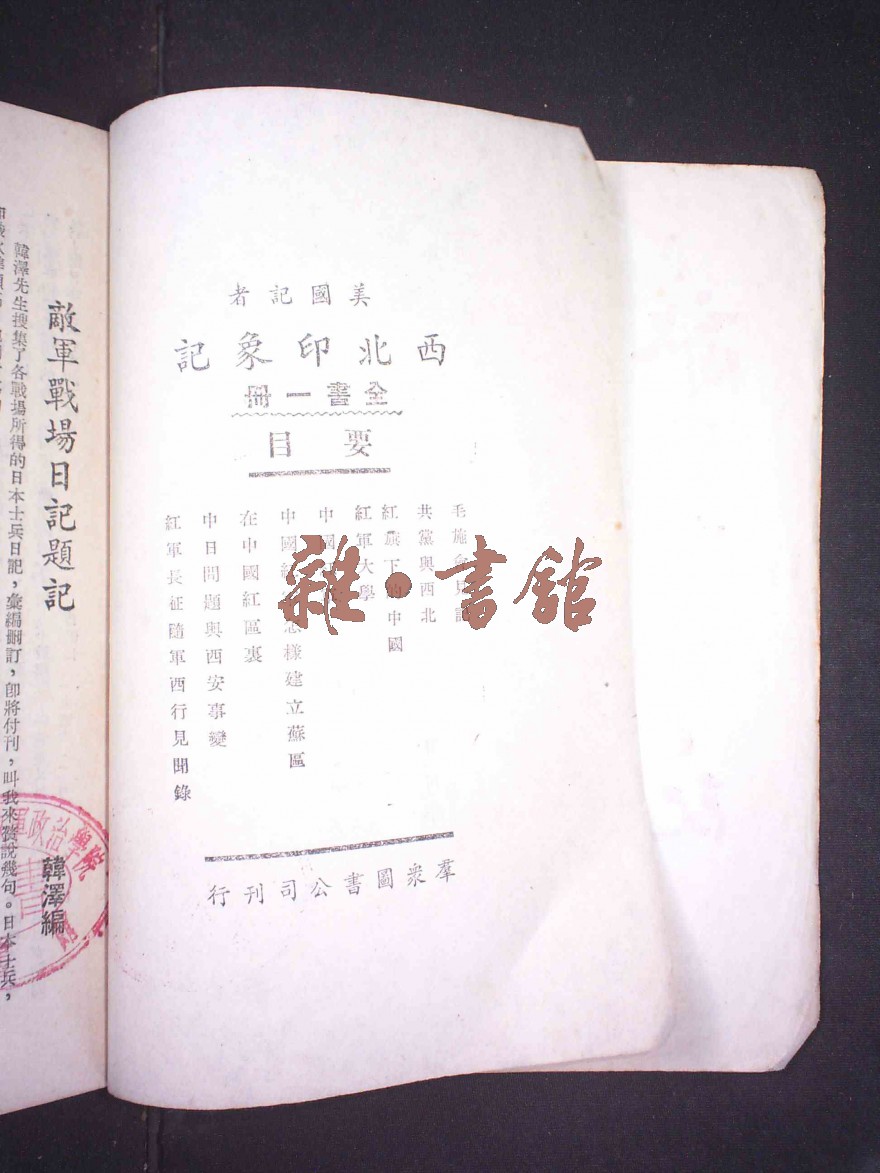 美國記者
西北印象記
全書一冊
要目
毛施會見記
共黨與西北
紅旗下的中國
紅軍大學
中國
中國紅 怎樣建立蘇區
在中國紅區裏
中日問題與西安事變
紅軍長征隨軍西行見聞錄
羣衆圖書公司刊行
雜·書館
敵軍戰場日記題記
韓澤編
韓澤先生搜集了各戰場所得的日本士兵日記，彙編刪訂，卽將付刊，叫我來說幾句。日本士兵，
軍政治學院